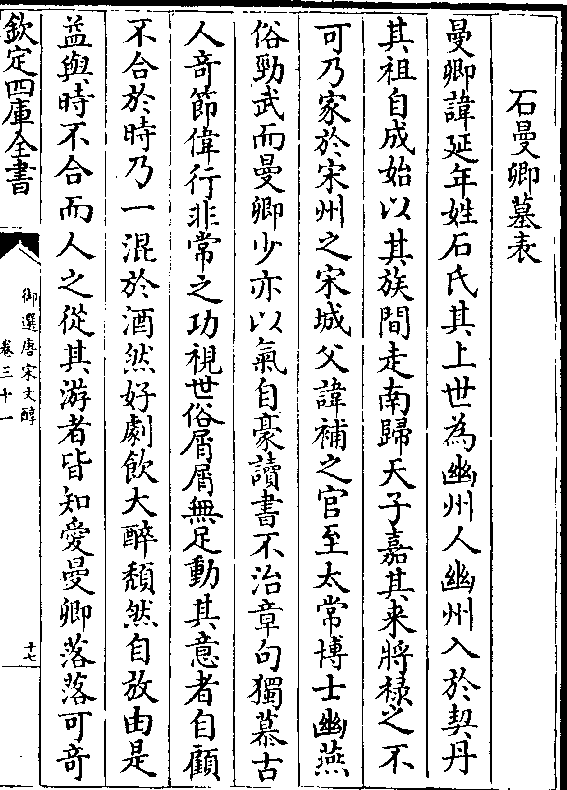 石曼卿墓表
曼卿諱延年姓石氏其上世為幽州人幽州入於契丹
其祖自成始以其族間走南歸天子嘉其来將禄之不
可乃家於宋州之宋城父諱補之官至太常博士幽燕
俗勁武而曼卿少亦以氣自豪讀書不治章句獨慕古
人奇節偉行非常之功視世俗屑屑無足動其意者自顧
不合於時乃一混於酒然好劇飲大醉頽然自放由是
益與時不合而人之從其游者皆知愛曼卿落落可奇
欽定四庫全書
御選唐宋文醇
卷三十一
十七